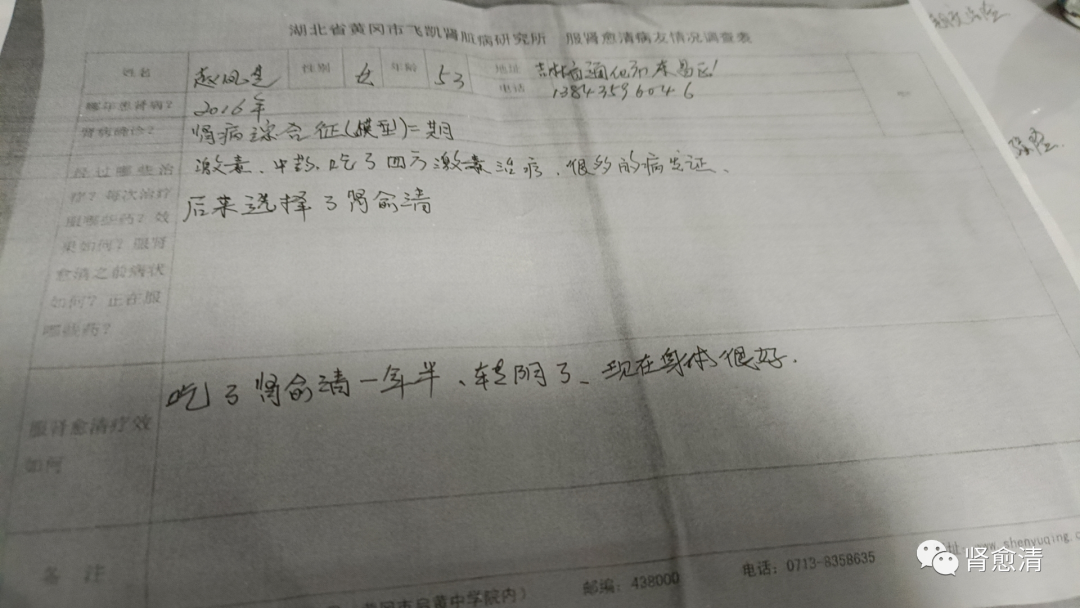 湖北省黄冈市飞凯肾脏病研究所 服肾愈清病友情况调查表
姓名 赵凤 性别 女 年龄 53 地址 吉林省通化市东昌区
电话 13843596046
哪年患肾病? 2016年
肾病确诊? 肾病综合征(膜型)二期
经过哪些治 激素、中药、吃了四方激素治疗、很多的病发证、
疗?每次治疗 后来选择了肾俞清
服哪些药?效
果如何?服肾
愈清之前病状
如何?正在服
哪些药?
服肾愈清疗效 吃了肾俞清一年半、转阴了、现在身体很好.
如何
备 注
(黄冈市启黄中学院内) 邮编:438000 电话:0713-8358635 网址:www.shenyuqing.c
肾愈清